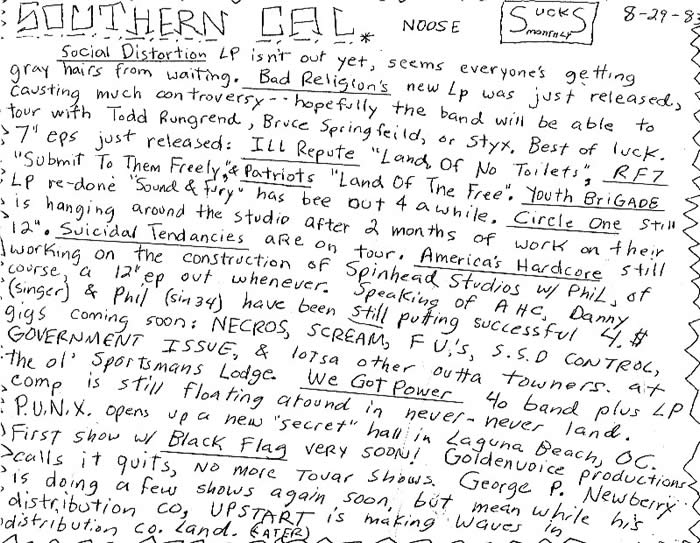 SOUTHERN CAL. * NOOSE SUCKS MONTHLY 8-29-83
Social Distortion LP isn't out yet, seems everyone's getting
gray hairs from waiting. Bad Religion's new Lp was just released,
causting much controversy -- hopefully the band will be able to
tour with Todd Rungrend, Bruce Springfeild, or Styx. Best of luck.
7" eps just released: ILL Repute "Land Of No Toilets", RF7
"Submit To Them Freely," & Patriots "Land Of The Free". Youth BriGADE
LP re-done "Sound & Fury" has bee out 4 awhile. Circle One still
is hanging around the studio after 2 months of work on their
12". Suicidal Tendancies aRe on tour. America's Hardcore still
working on the construction of Spinhead Studios w/ Phil, of
course, a 12" ep out whenever. Speaking of AHC, Danny
(singer) & Phil (sin 34) have been still putting successful 4.$
gigs coming soon: NECROS, SCREAM, F.U.'s, S.S.D CONTROL,
GOVERNMENT ISSUE, & lotsa other outta towners. at
the ol' Sportsmans Lodge. We Got Power 40 band plus LP
comp is still floating around in never-never land.
P.U.N.X. opens up a new "secret" hall in Laguna Beach, OC.
First show w/ Black Flag very soon! Goldenvoice productions
calls it quits, no more Tovar Shows. George P. Newberry
is doing a few shows again soon, but mean while his
distribution co, UPSTART is making waves in
distribution co. land. (LATER)